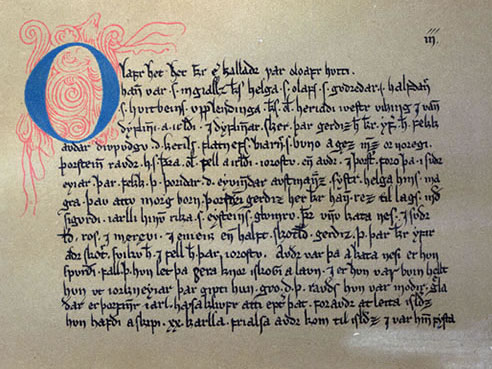 iij.
Olafr het her kr er kalladr var oloafr huiti.
han var . s . ingiallz ks helga . s . olafs . s . gudrodar . s . halfdan
s . huitbeins . vpplendinga . ks . ol heriadi vestr viking z van
dyflini . a irldi . z dyflinar . sker . þar gerdiz h kr . yf . h . fekk
audar diupudgv . d . ketils . flatnefs . biarn s . buno a gez or noregi .
þorstein raudr . h . s . þra . ol . fell a irldi . iorostv . en audr . z þorst . foro þa . i sidr
eyiar . þar . fekk . þ . þoridar . d . eyvindar austmanz . systr . helga hins . ma
gra . þau attv morg born . þorstein gerdiz her kr han . rez til lags . md
sigurdi . iarlli hinu rika . s . eysteins . glumro . þr vnno kata nes . z sudr
ld . ros . z merevi . z meir en halft . skotld . gerdiz . þ . þar kr yfir
adr skot . sviku h . z fell h þar . iorostv . Audr var þa a kata nesi er hon
spurdi . fall . þ . hun let þa gera knor . i skogi a laun . z er hon var buin hellt
hun vt i orkneyiar þar gipti hun . gro . d . þ . rauds hun var modir . gla
dar er þorfinr iarl . hafakliufr atti ept þat . for audr at leita islz
hun hafdi a skipi . xx . karlla . frialsa audr kom til islz . z var hin fysta